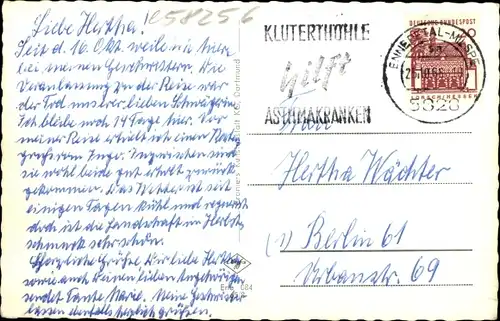 e58256
Liebe Hertha!
Seit d. 16. Okt. weile ich hier
bei meinen Geschwistern. Die
Veranlassung zu der Reise war
der Tod unsrer lieben Schwägerin
Ich bleibe noch 14 Tage hier. Vor
meiner Reise erhielt ich einen Karten
gruß von Inge. Inzwischen sind
sie wohl beide gut erholt zurück
gekommen. Das Wetter ist seit
einigen Tagen kühl und regnerisch
doch ist die Landschaft im Herbst
schmuck sehr schön.
Herzliche Grüße Dir liebe Hertha
sowie auch Deinen lieben Angehörigen
sendet Tante Marie. Meine Geschwister
lassen ebenfalls herzlich grüßen.
KLUTERTHÖHLE
hilft
ASTHMAKRANKEN
DEUTSCHE BUNDESPOST
ENNEPETAL-MILSPE
5828
Frau
Hertha Wächter
(1) Berlin 61
Urbanstr. 69
Dortmund
Enn. 684